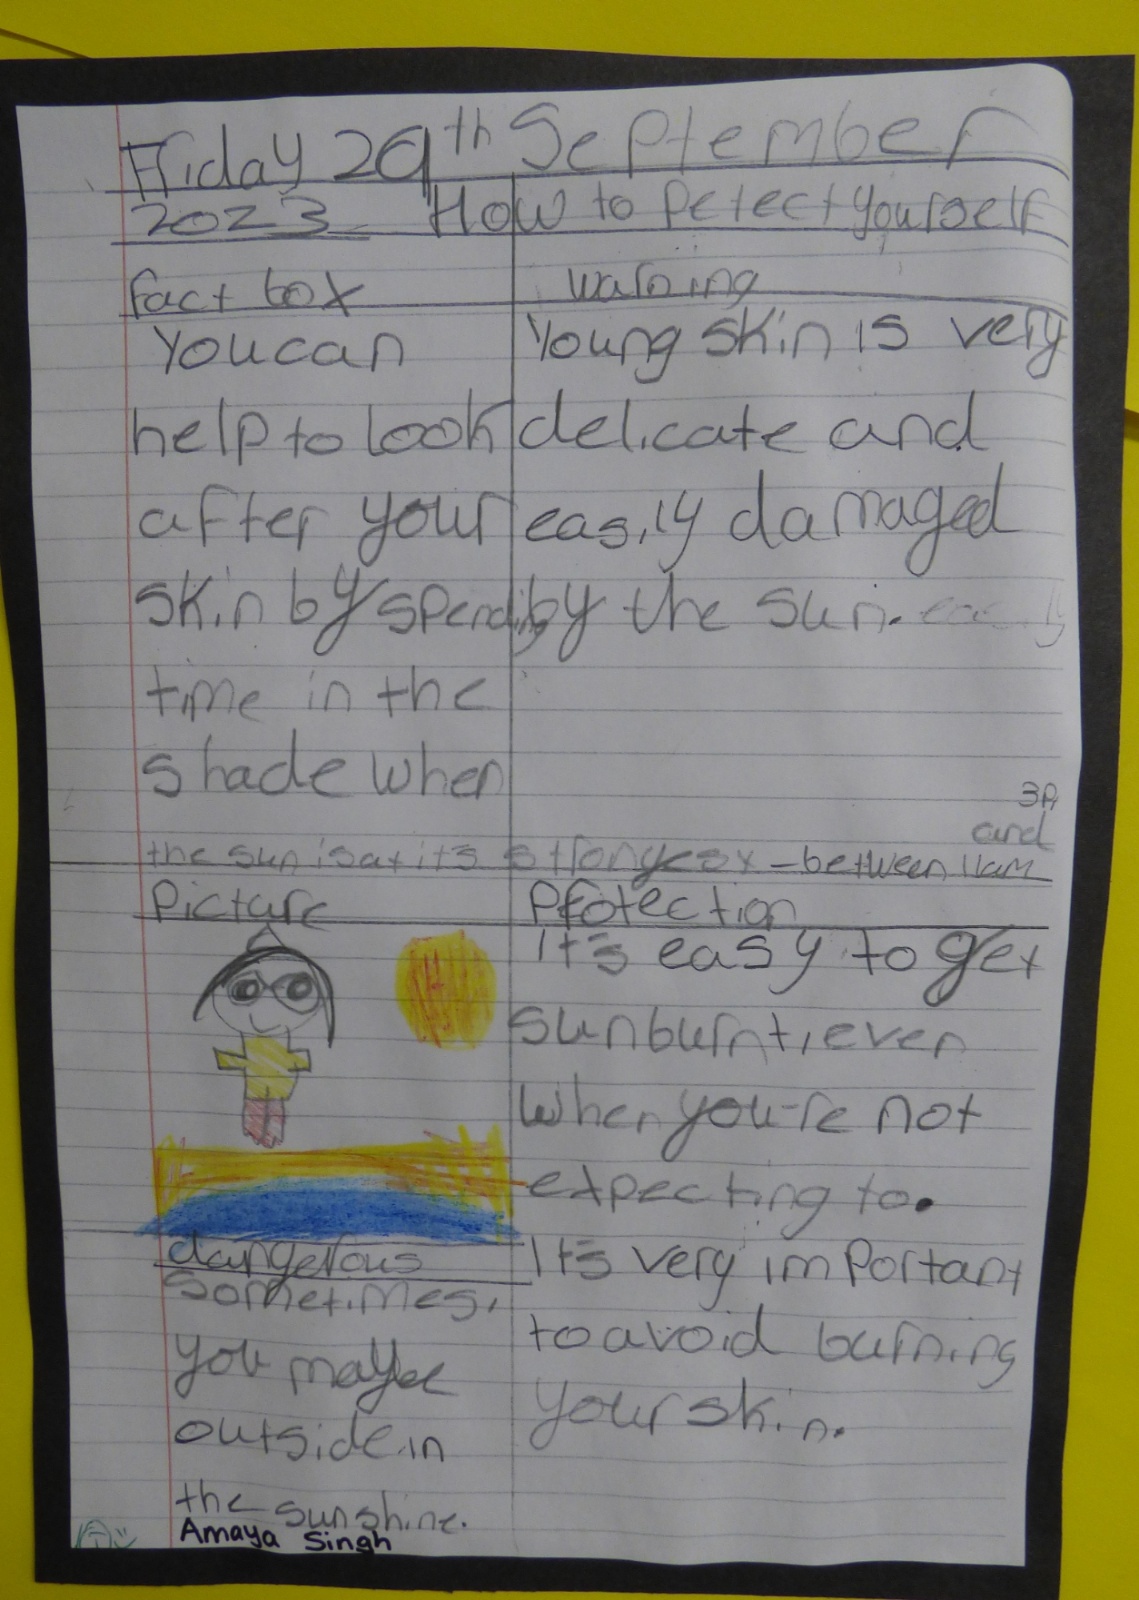 Friday 29th September
2023 How to Petect yourself
fact box
You can
help to look
after your
skin by spending
time in the
shade when
the sun is at its strongest – between 11am
and
3P
warning
Young skin is very
delicate and
easily damaged
by the sun.
Picture
Protection
It's easy to get
sunburnt, even
when you're not
expecting to.
It's very important
to avoid burning
your skin.
dangerous
Sometimes,
you maybe
outside in
the sunshine.
Amaya Singh